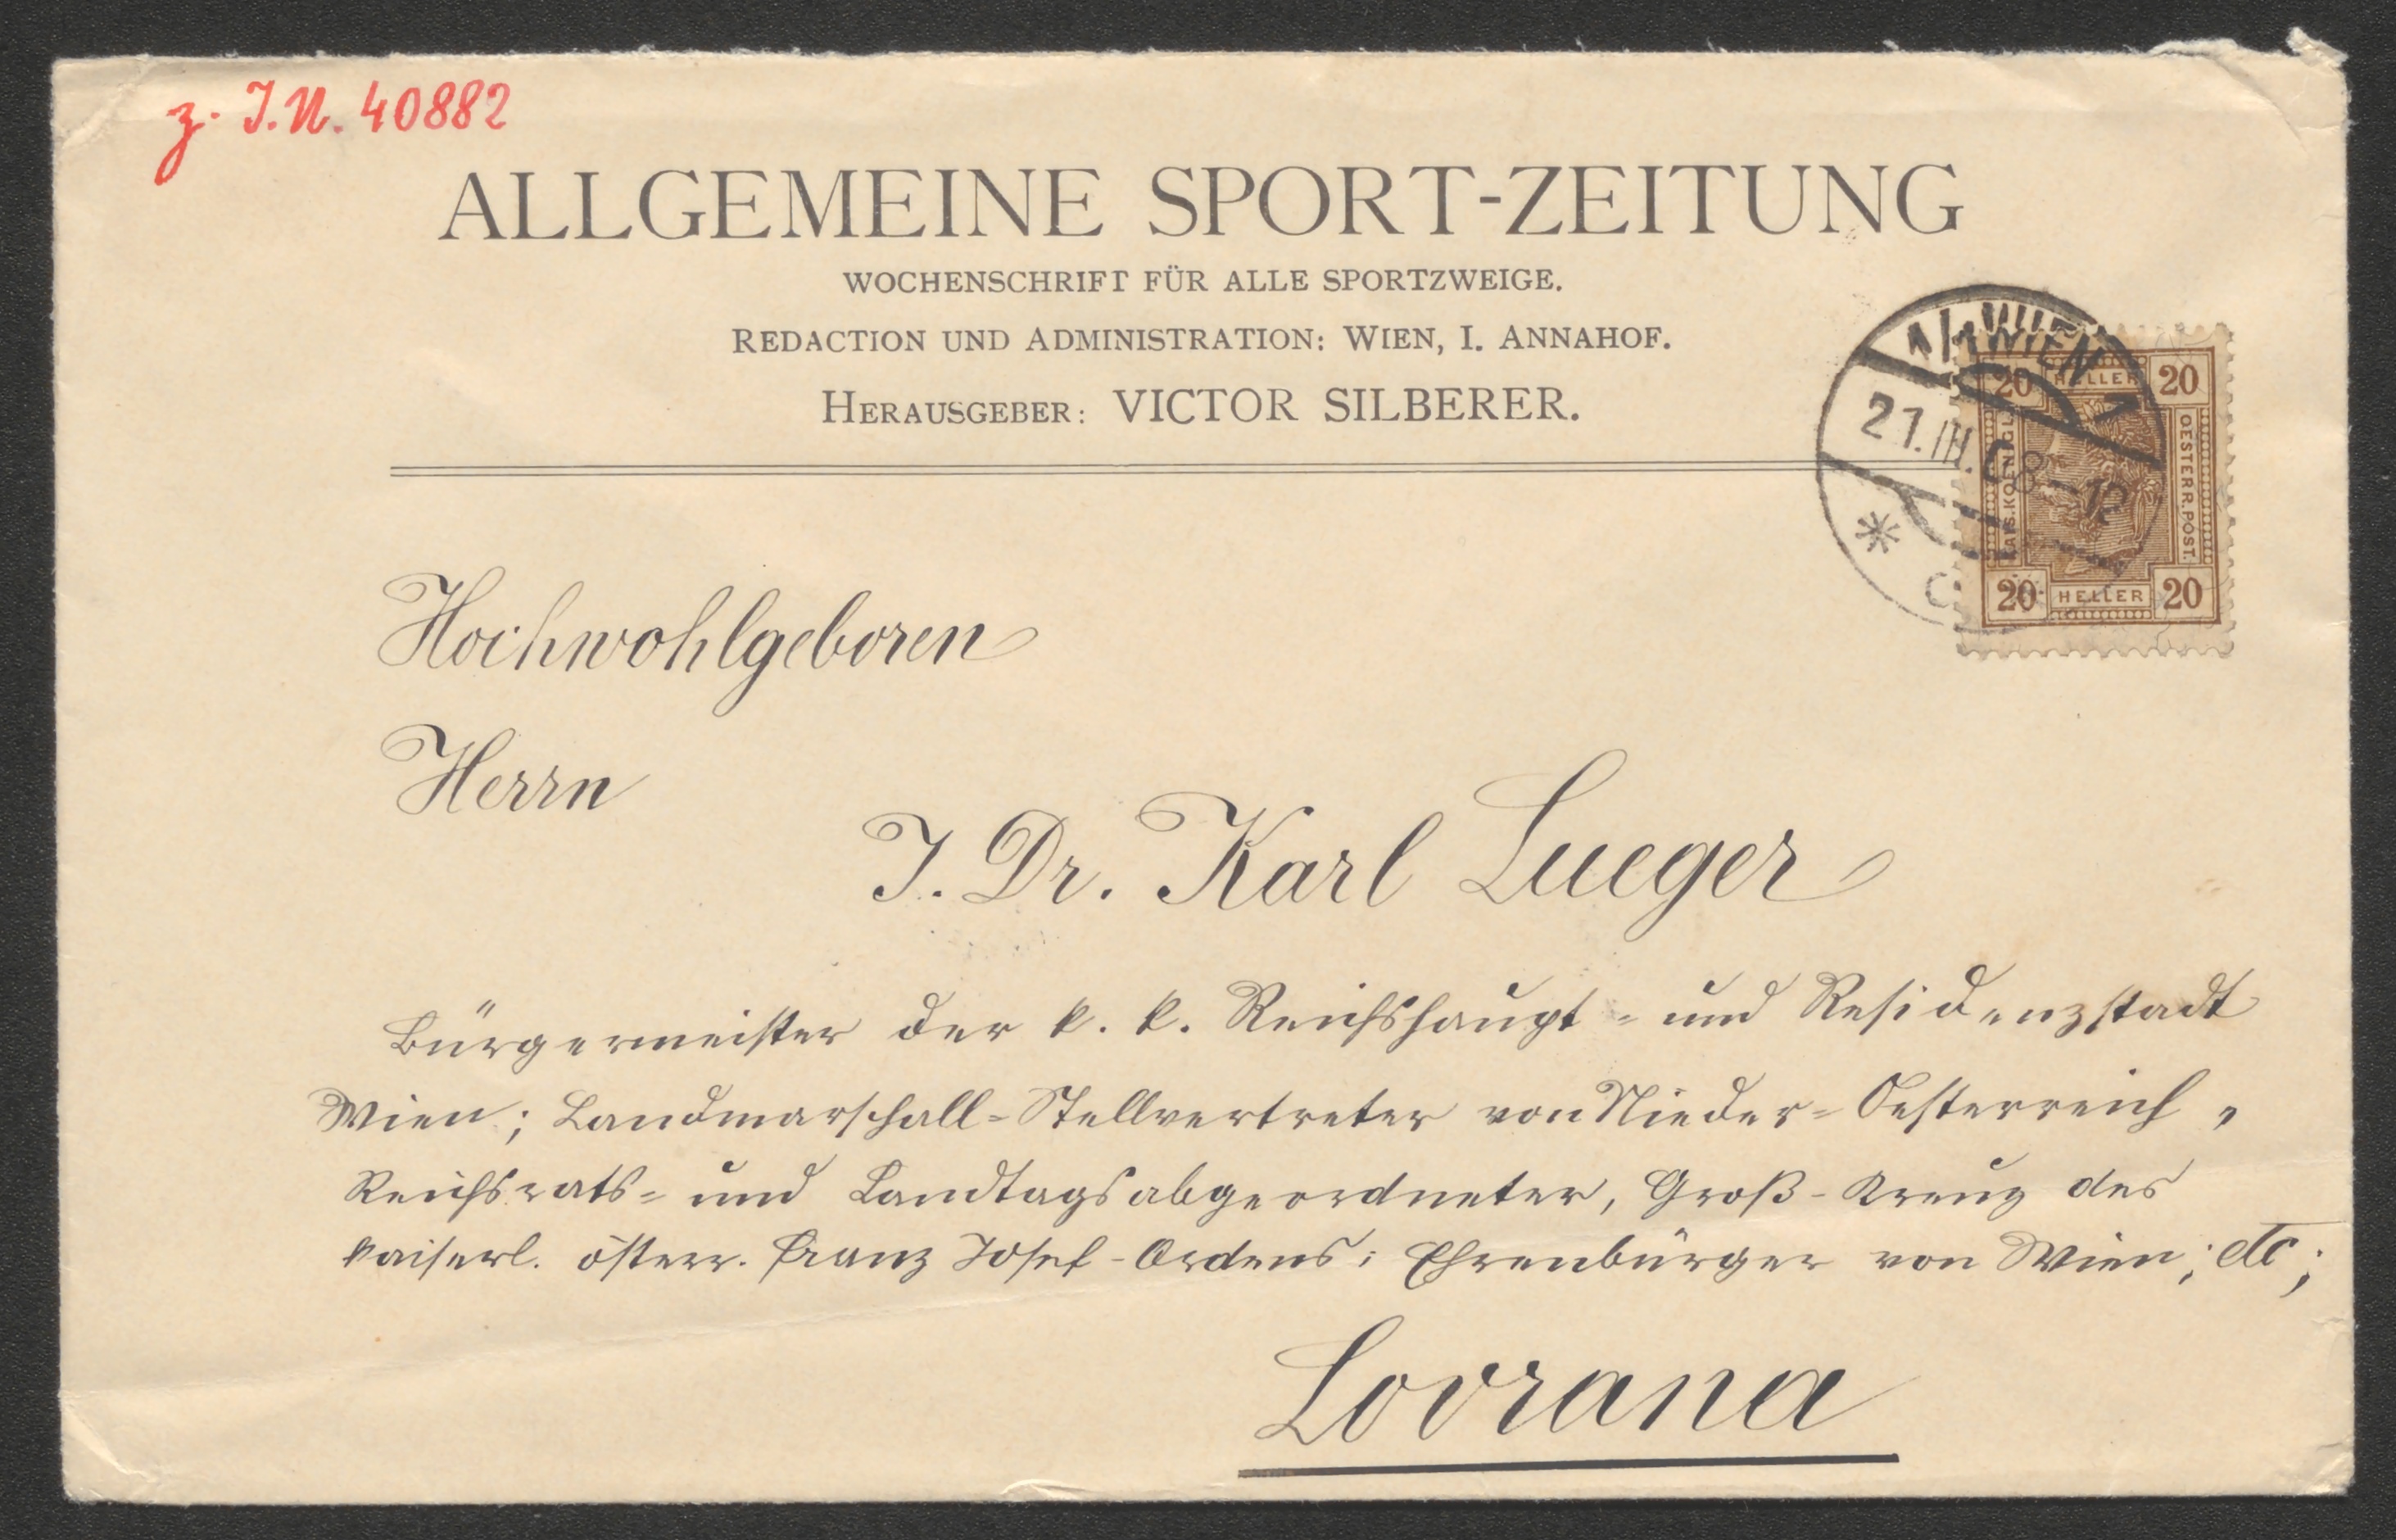 z. I.N. 40882
ALLGEMEINE SPORT-ZEITUNG
WOCHENSCHRIFT FÜR ALLE SPORTZWEIGE.
REDACTION UND ADMINISTRATION: WIEN, I. ANNAHOF.
HERAUSGEBER: VICTOR SILBERER.
1/1 WIEN 1
21.III.
8-12
20 HELLER 20
KAIS.KOENIGL.
OESTERR.POST.
20 HELLER 20
Hochwohlgeboren
Herrn
J. Dr. Karl Lueger
Bürgermeister der k. k. Reichshaupt- und Residenzstadt
Wien; Landmarschall-Stellvertreter von Nieder-Oesterreich,
Reichsrats- und Landtagsabgeordneter, Groß-Kreuz des
kaiserl. österr. Franz Josef-Ordens; Ehrenbürger von Wien; etc;
Lovrana